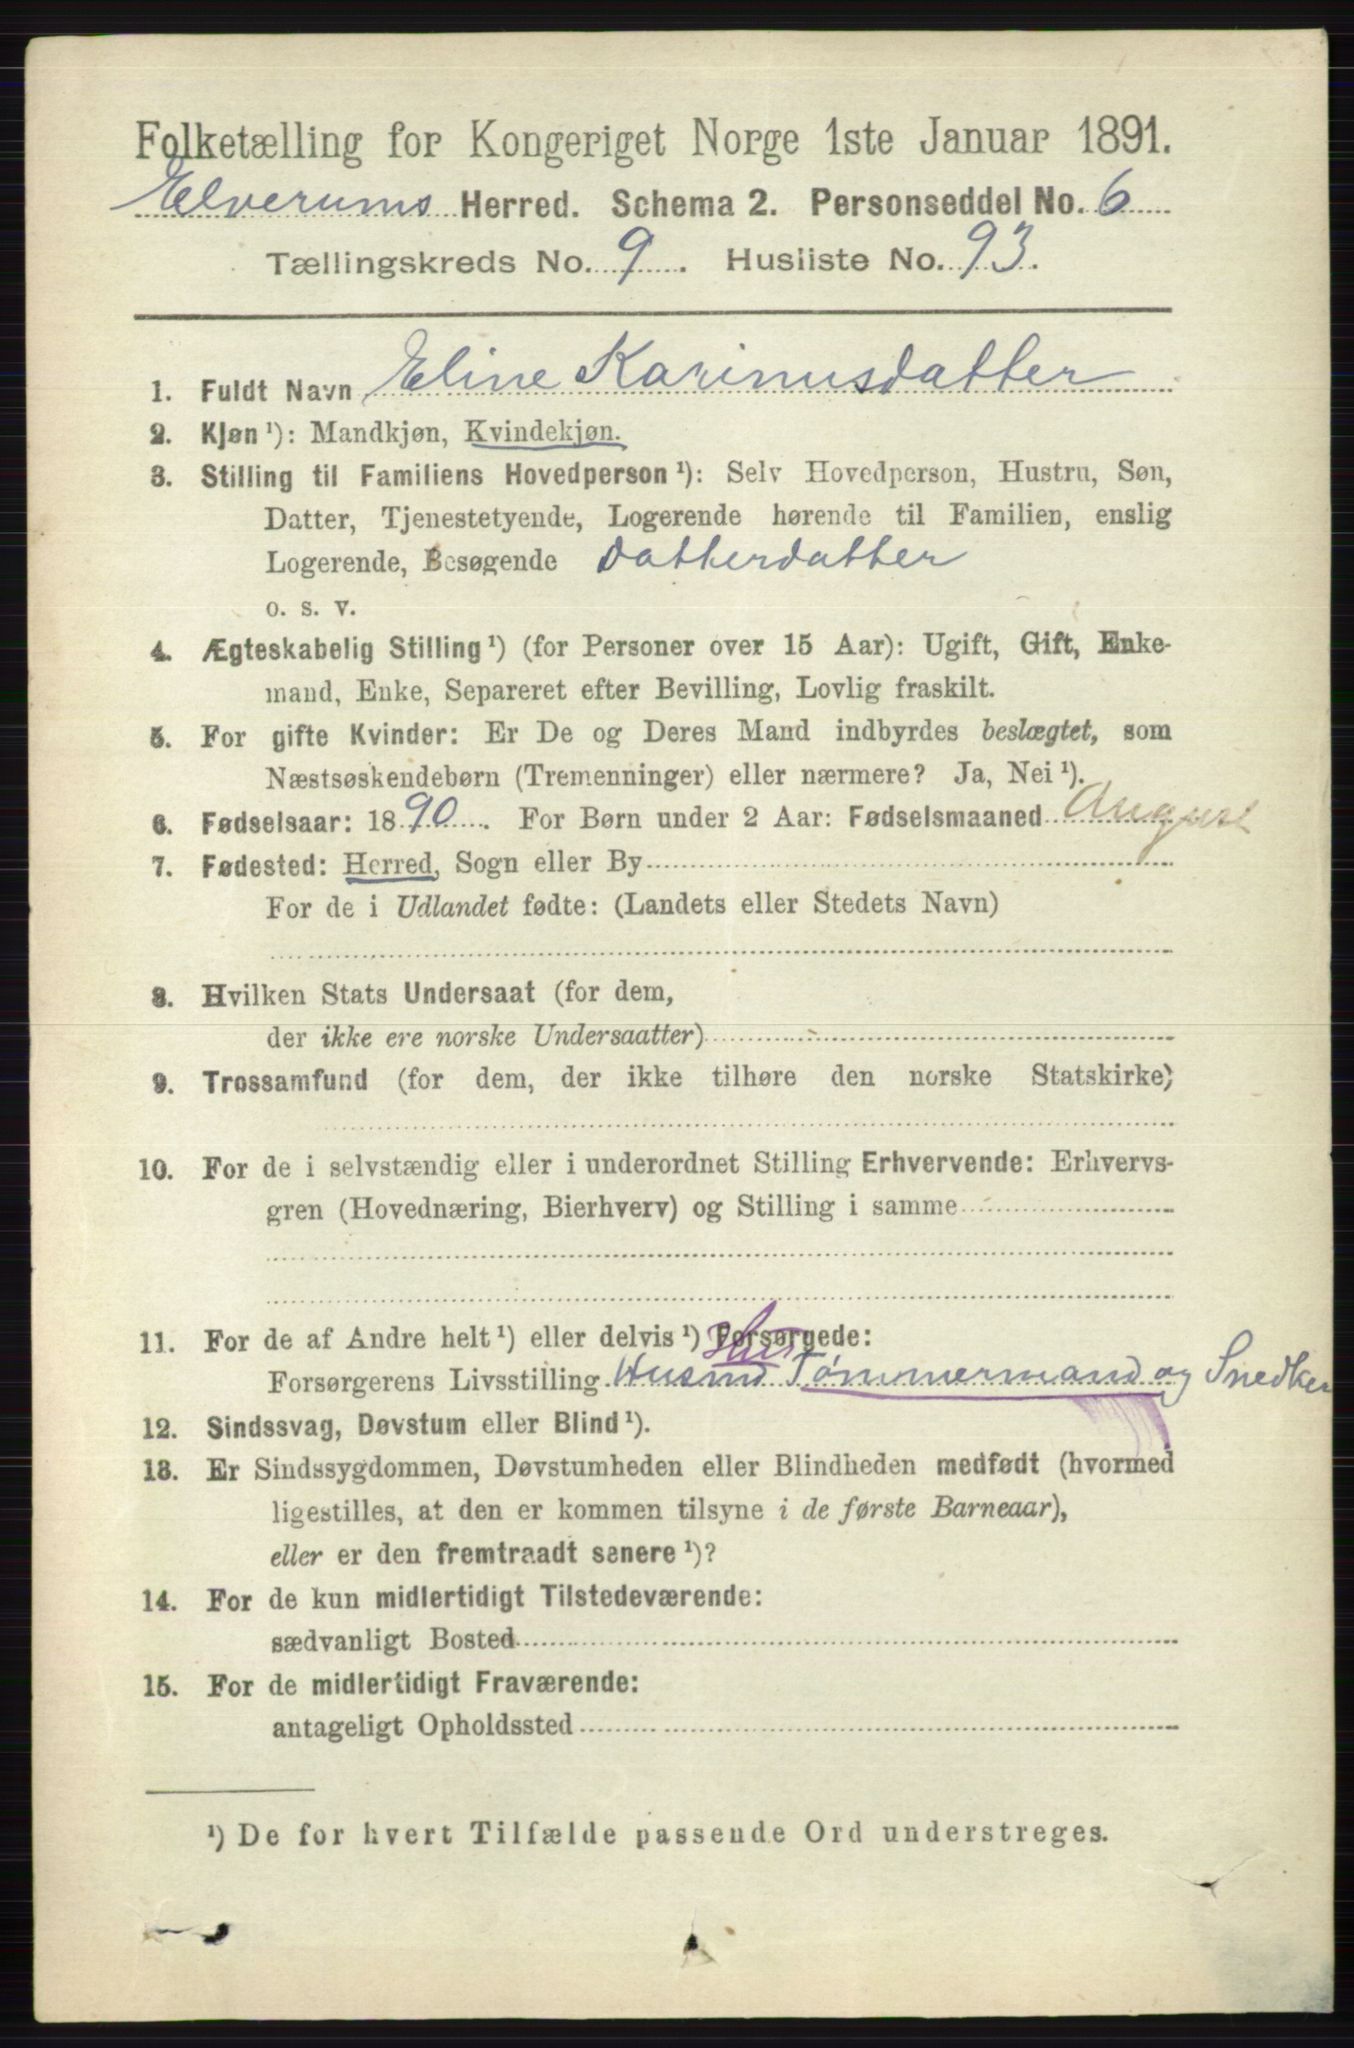 Folketælling for Kongeriget Norge 1ste Januar 1891.
Elverums Herred. Schema 2. Personseddel No. 6
Tællingskreds No. 9. Husliste No. 93.
1. Fuldt Navn Eline Karinusdatter
2. Kjøn ¹): Mandkjøn, Kvindekjøn.
3. Stilling til Familiens Hovedperson ¹): Selv Hovedperson, Hustru, Søn,
Datter, Tjenestetyende, Logerende hørende til Familien, enslig
Logerende, Besøgende Datterdatter
o. s. v.
4. Ægteskabelig Stilling ¹) (for Personer over 15 Aar): Ugift, Gift, Enke-
mand, Enke, Separeret efter Bevilling, Lovlig fraskilt.
5. For gifte Kvinder: Er De og Deres Mand indbyrdes beslægtet, som
Næstsøskendebørn (Tremenninger) eller nærmere? Ja, Nei ¹).
6. Fødselsaar: 1890. For Børn under 2 Aar: Fødselsmaaned August
7. Fødested: Herred, Sogn eller By
For de i Udlandet fødte: (Landets eller Stedets Navn)
8. Hvilken Stats Undersaat (for dem,
der ikke ere norske Undersaatter)
9. Trossamfund (for dem, der ikke tilhøre den norske Statskirke)
10. For de i selvstændig eller i underordnet Stilling Erhvervende: Erhvervs-
gren (Hovednæring, Bierhverv) og Stilling i samme
11. For de af Andre helt ¹) eller delvis ¹) Forsørgede:
Hus
Forsørgerens Livsstilling Husmd Tømmermand og Snedker
12. Sindssvag, Døvstum eller Blind ¹).
13. Er Sindssygdommen, Døvstumheden eller Blindheden medfødt (hvormed
ligestilles, at den er kommen tilsyne i de første Barneaar),
eller er den fremtraadt senere ¹)?
14. For de kun midlertidigt Tilstedeværende:
sædvanligt Bosted
15. For de midlertidigt Fraværende:
antageligt Opholdssted
¹) De for hvert Tilfælde passende Ord understreges.